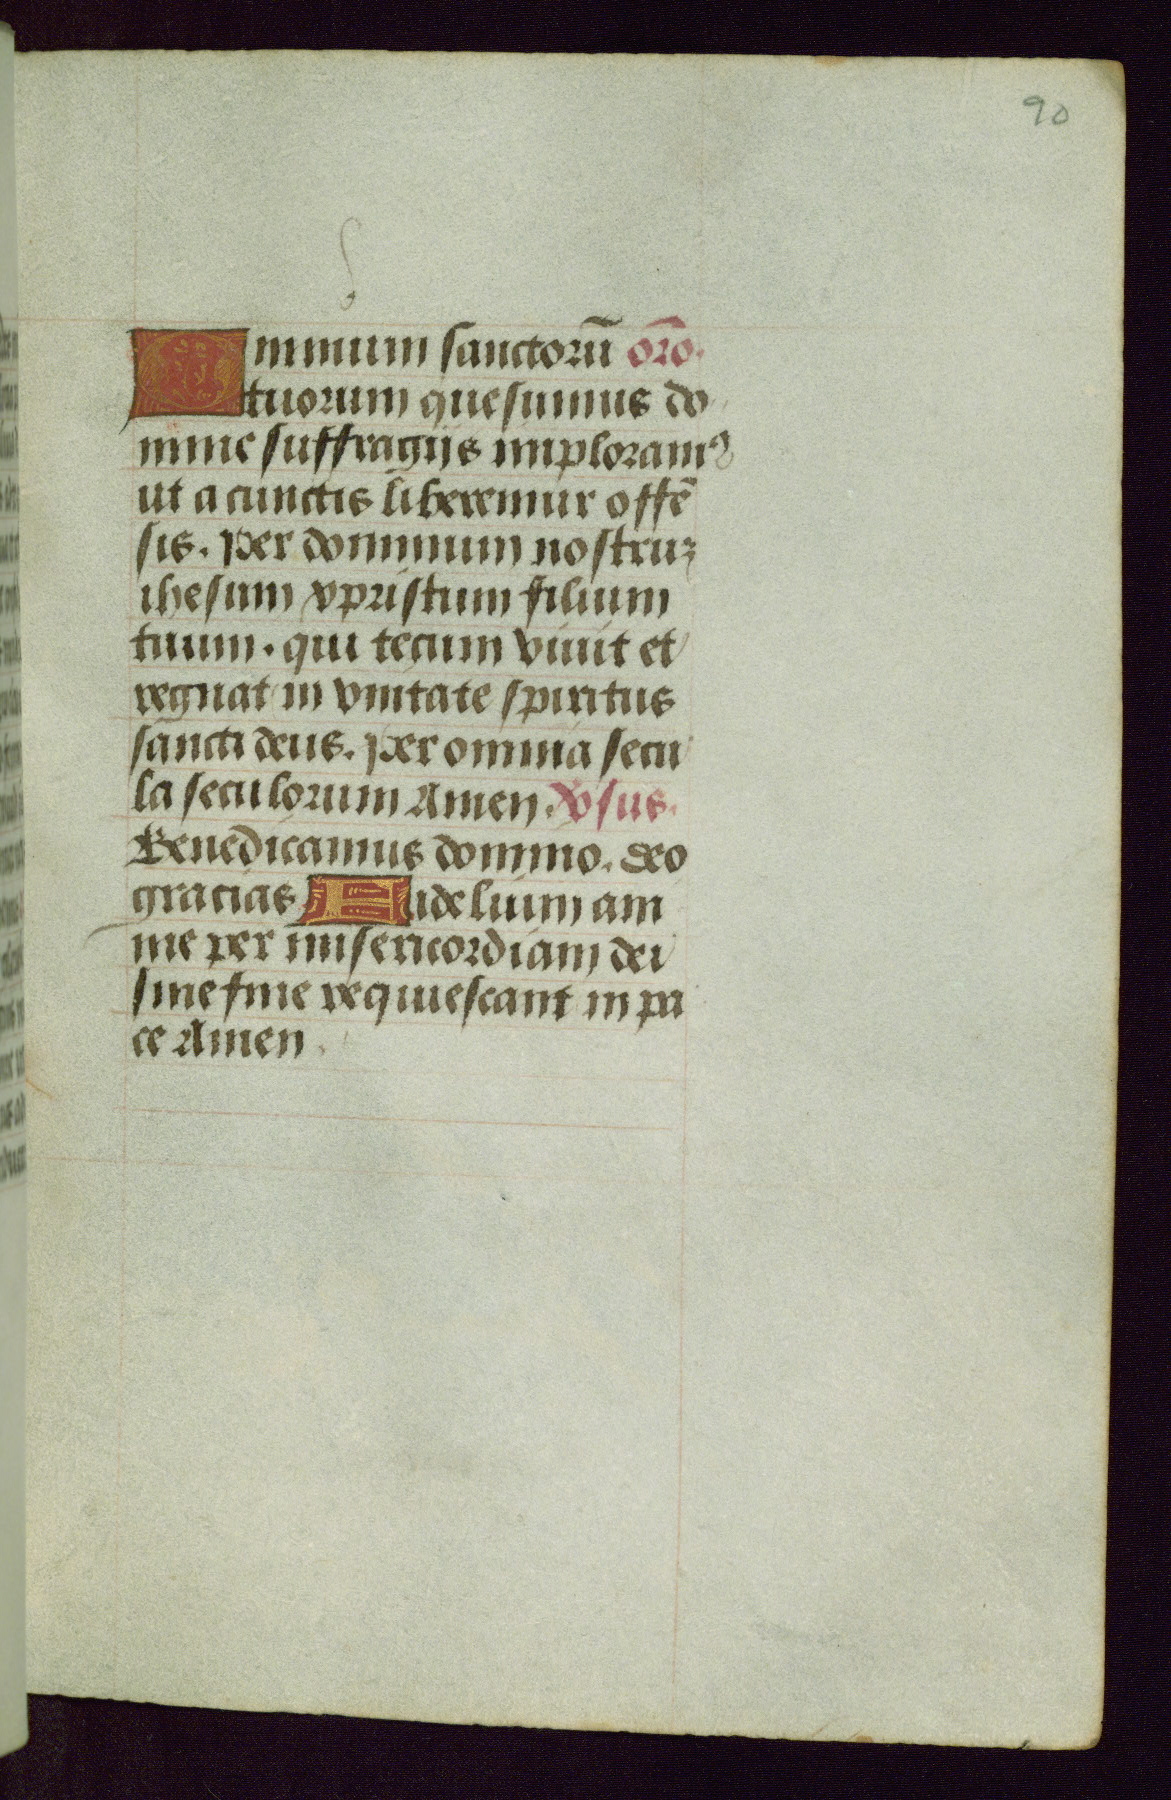 90
Omnium sanctorū or̄o.
tuorum quesumus do
mine suffragijs imploramꝰ
ut a cunctis liberemur offē
sis. Per dominum nostruꝫ
ihesum xpristum filium
tuum. qui tecum viuit et
regnat in vnitate spiritus
sancti deus. Per omnia secu
la seculorum Amen. V̄sus.
Benedicamus domino. deo
gracias Fidelium ani
me per misericordiam dei
sine fine requiescant in pa
ce Amen.